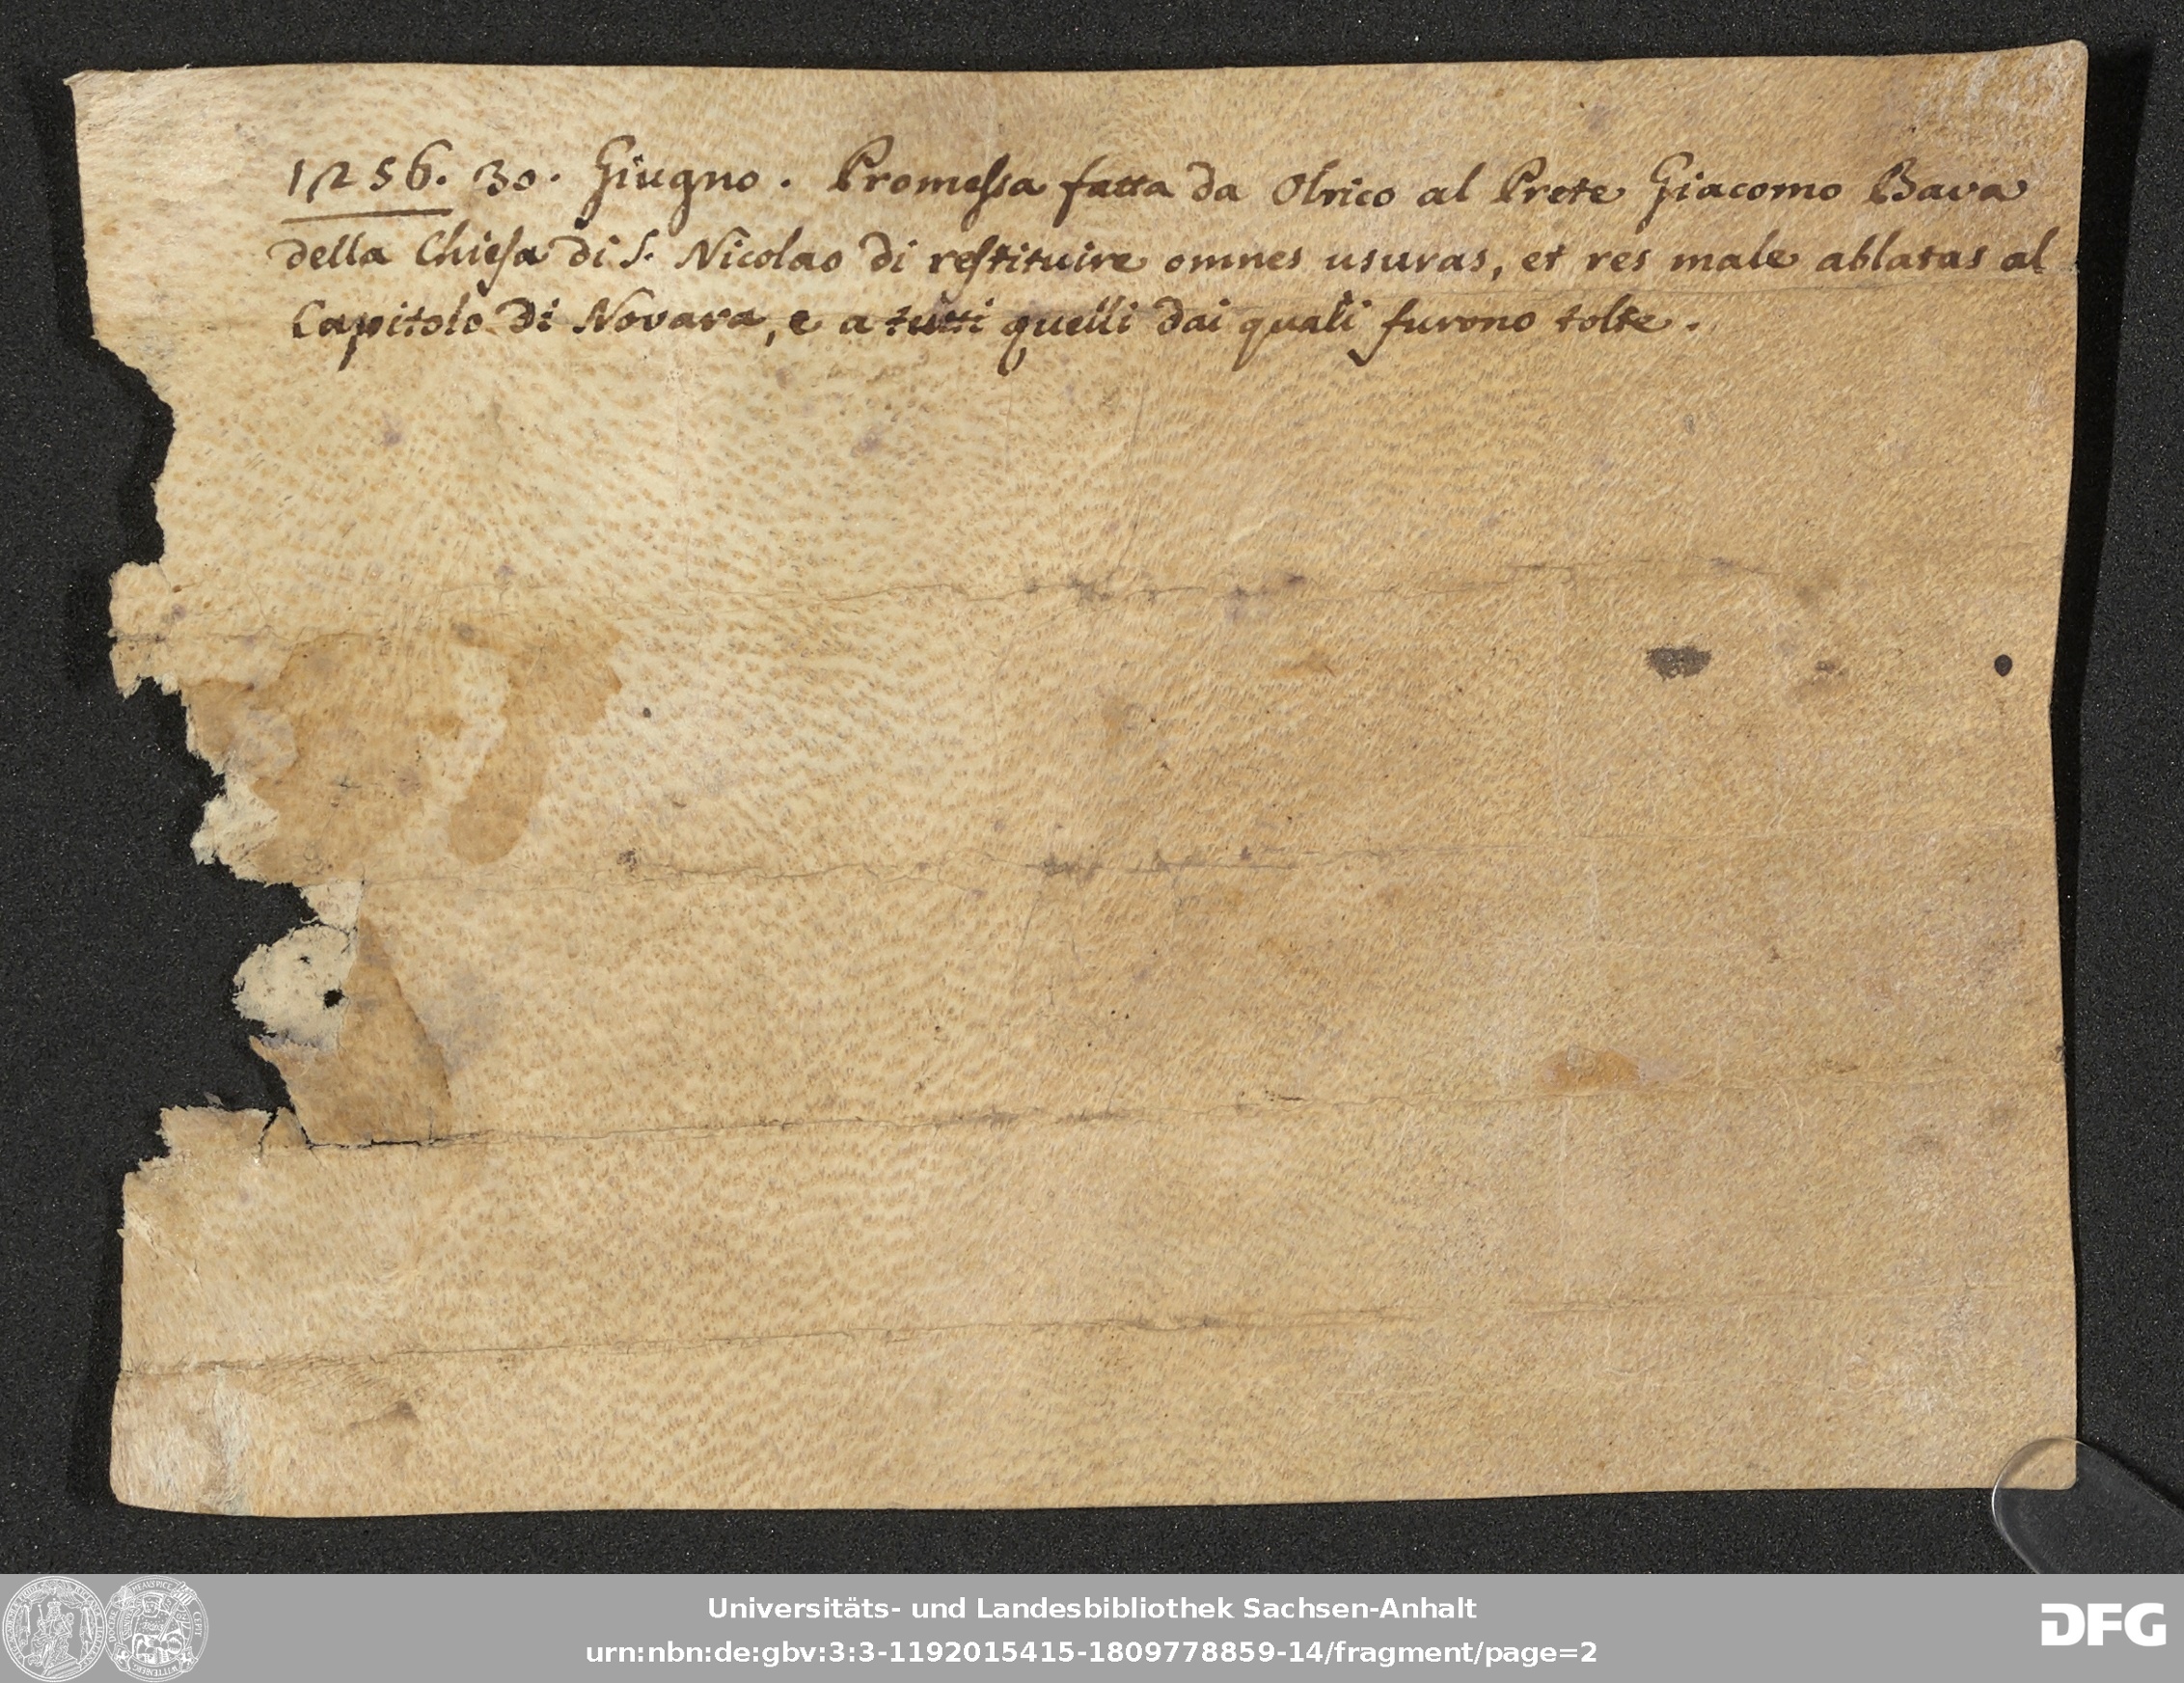 1256. 30. Giugno. Promessa fatta da Olrico al Prete Giacomo Bava
della Chiesa di S. Nicolao di restituire omnes usuras, et res male ablatas al
Capitolo di Novara, e a tutti quelli dai quali furono tolte.
Universitäts- und Landesbibliothek Sachsen-Anhalt
urn:nbn:de:gbv:3:3-1192015415-1809778859-14/fragment/page=2
DFG